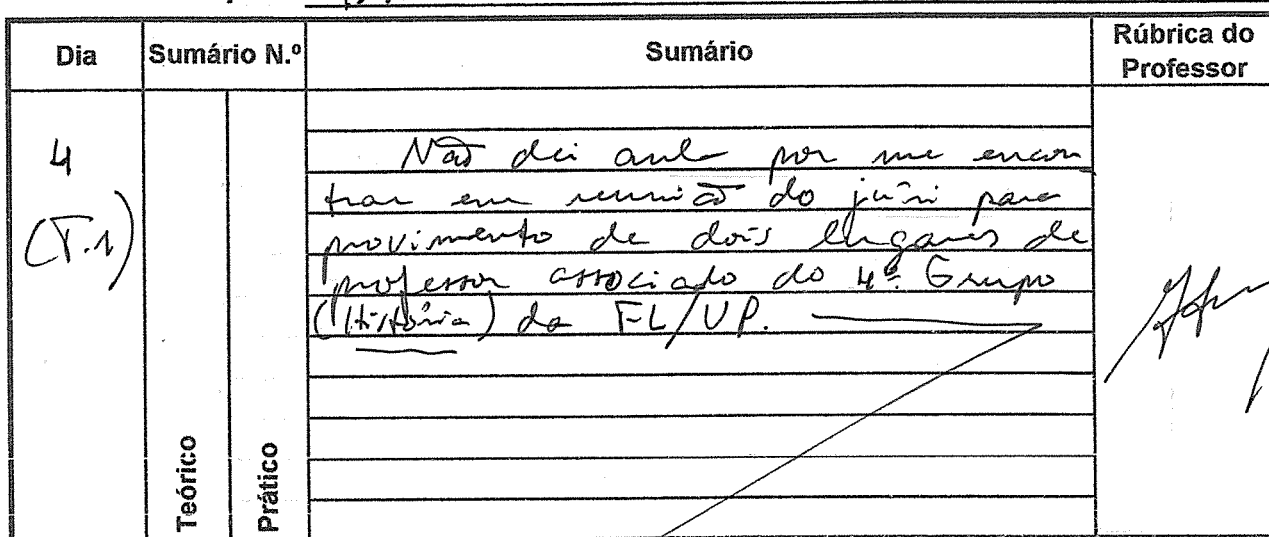 Dia Sumário N.º Sumário Rúbrica do
Professor
4
(T.1)
Não dei aula por me encon
trar em reunião do júri para
provimento de dois lugares de
professor associado do 4º Grupo
(História) da FL/UP.
Teórico
Prático